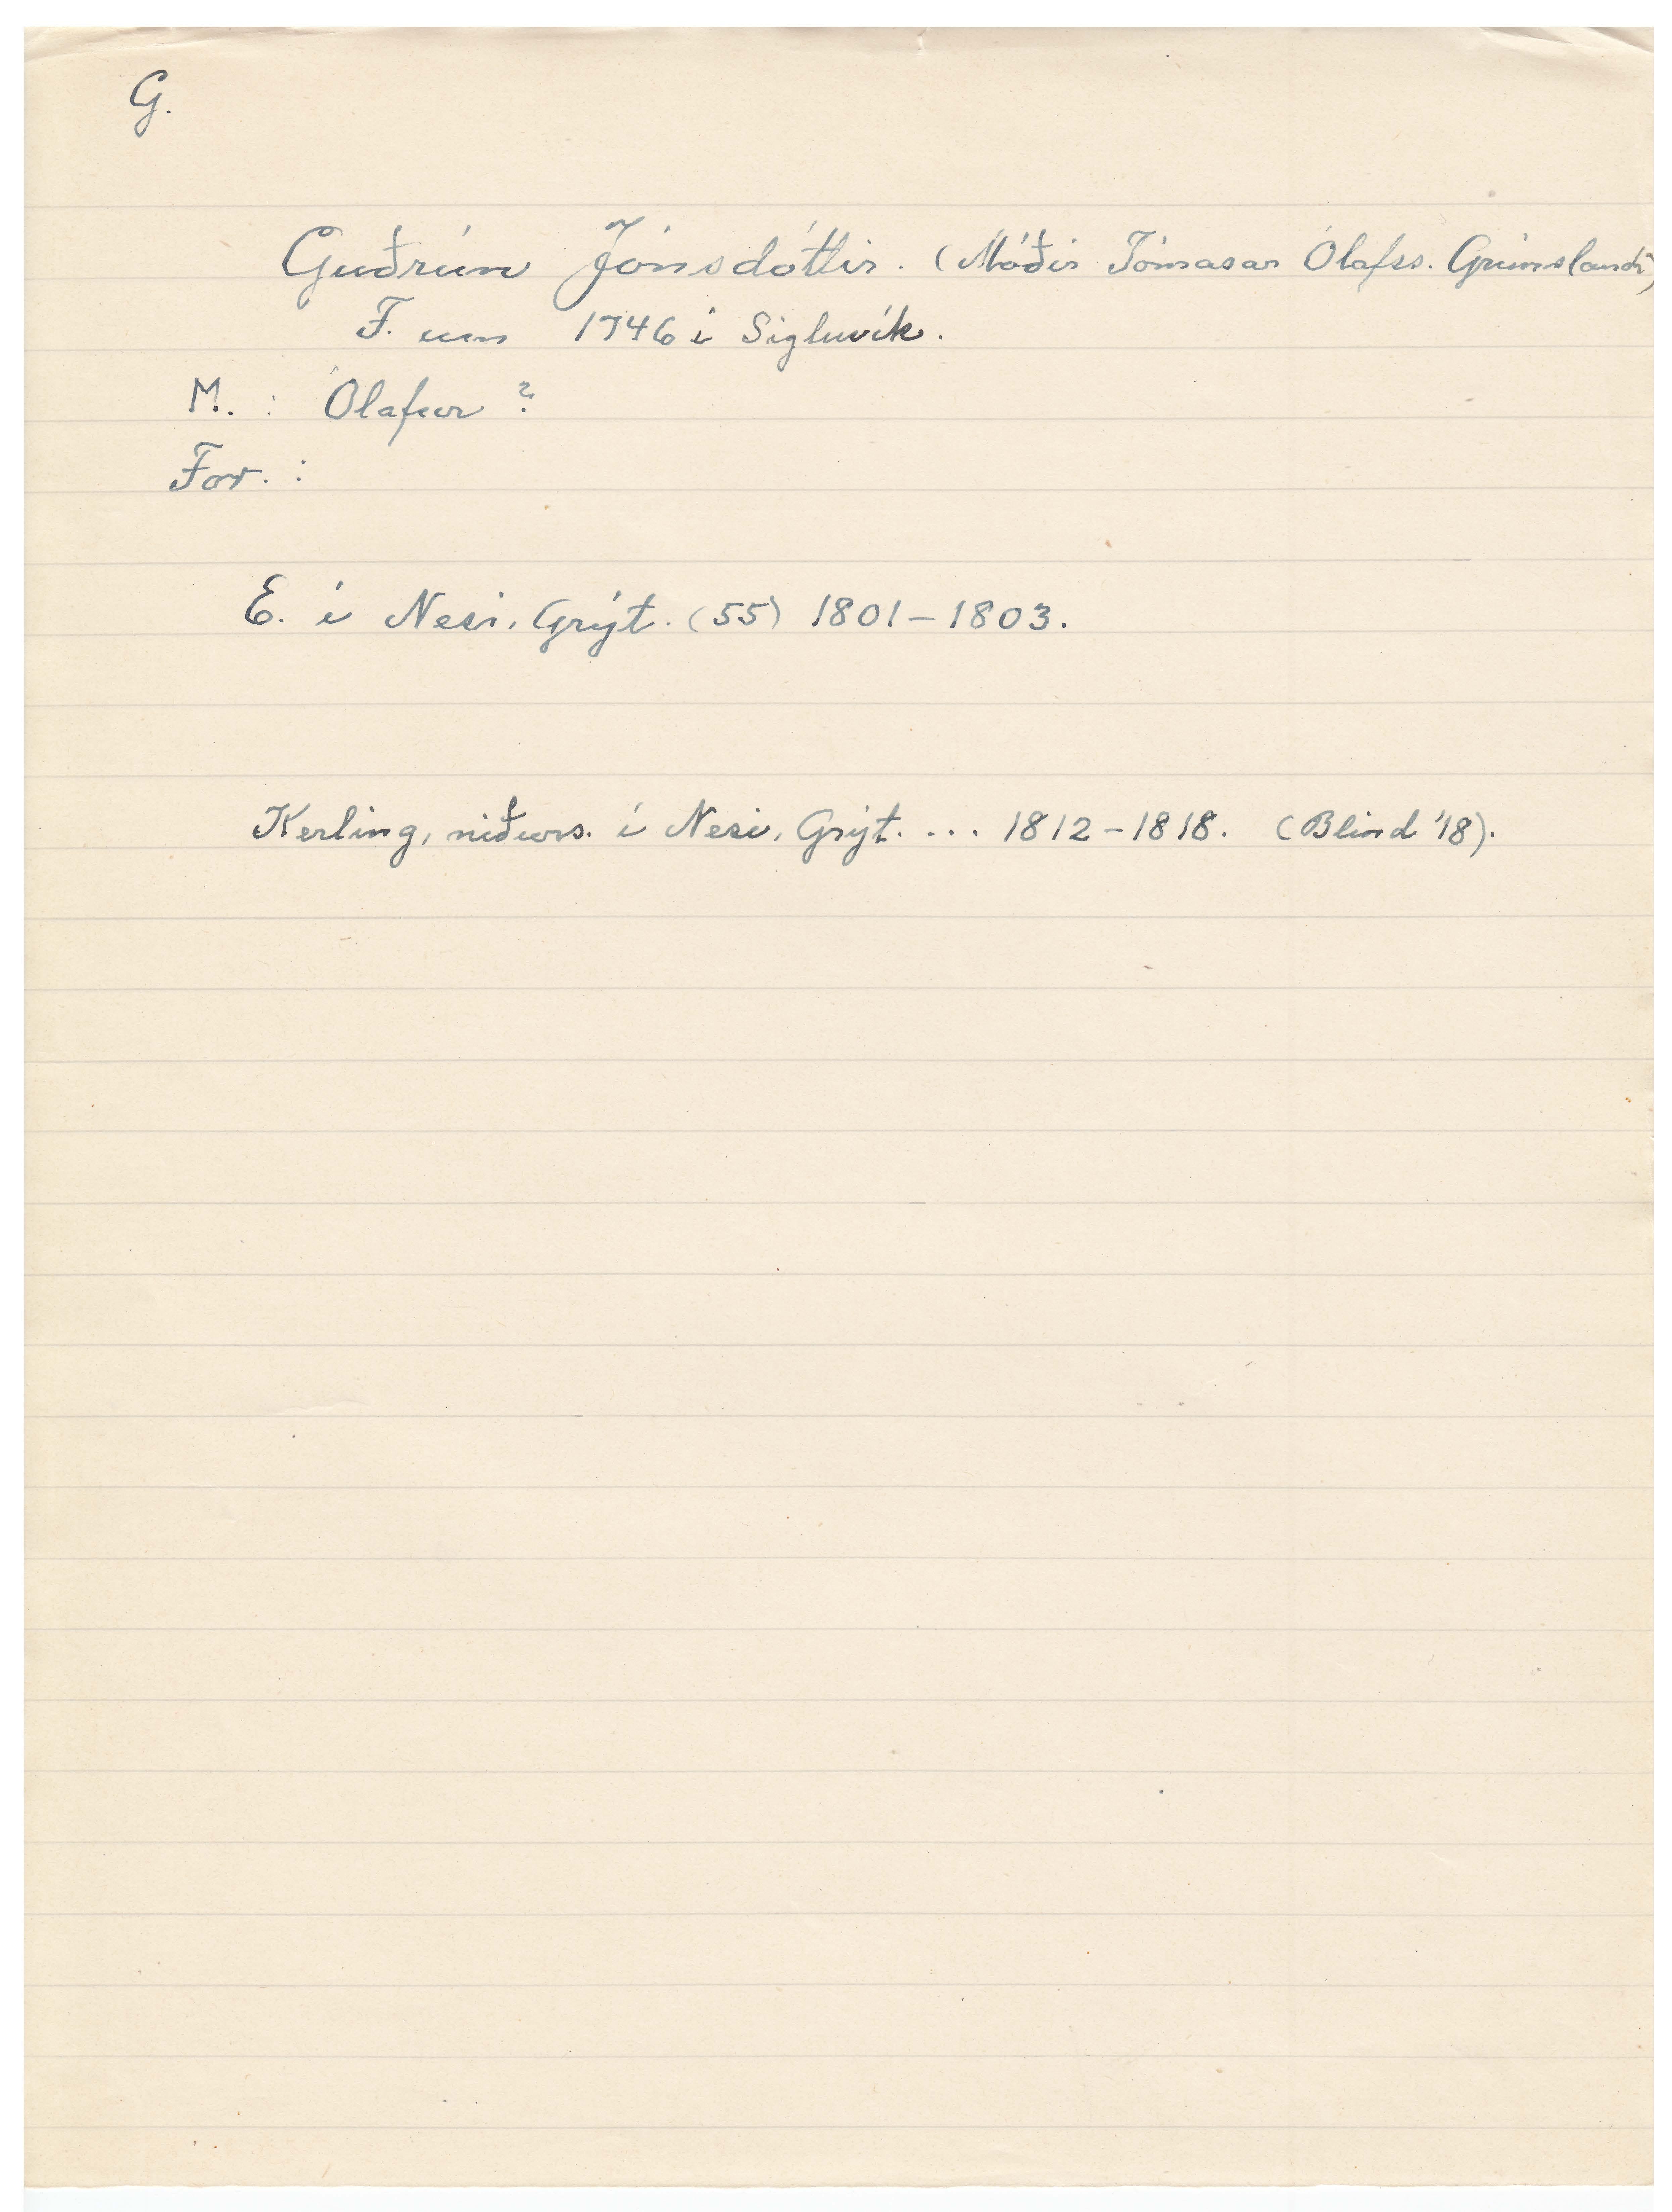 G.
Guðrún Jónsdóttir. (Móðir Tómasar Ólafss. Grímslandi)
F. um 1746 í Sigluvík.
M. : Ólafur ?
For. :
E. í Nesi, Grýt. (55) 1801-1803.
Kerling, niðurs. í Nesi, Grýt. ... 1812-1818. (Blind '18).